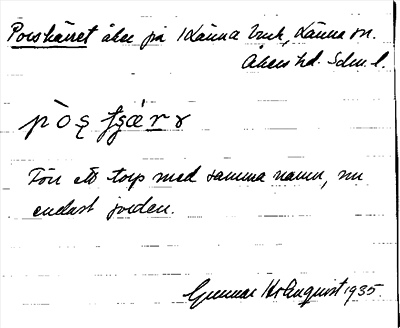 Porskärret åker på Länna bruk, Länna sn.
Åkers hd. Sdm. l.
Förr ett torp med samma namn, nu
endast jorden.
Gunnar 1935.